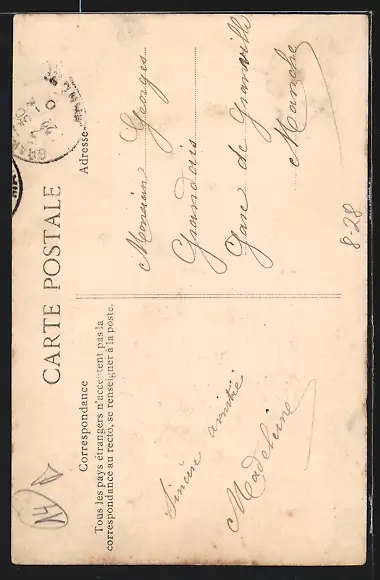 CARTE POSTALE
Correspondance
Tous les pays étrangers n'acceptent pas la
correspondance au recto, se renseigner à la poste.
Sincère amitié
Madeleine
Adresse
Monsieur Georges
Grandais
Gare de Granville
Manche
8-28
14